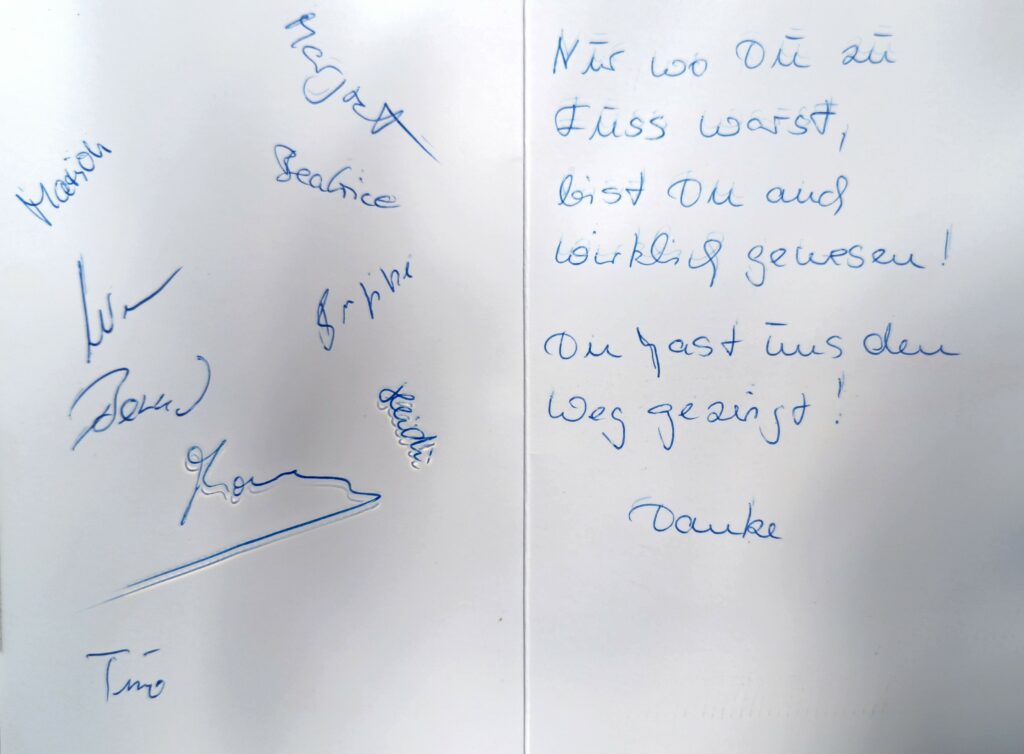 Margret
Marion
Beatrice
Bernd
Heidi
Tino
Nur wo Du zu
Fuss warst,
bist Du auch
wirklich gewesen!
Du hast uns den
Weg gezeigt!
Danke